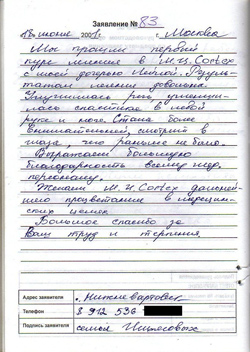 Заявление № 83
июне 200 г. г. Москва
Мы прошли первый
курс лечения в М.Ц. Cortex
с моей дочерью Лейлой. Резуль-
татом лечения довольны.
Улучшилась речь, уменьши-
лась спастика в левой
руке и ноге. Стала более
внимательней, смотрит в
глаза, чего раньше не было.
Выражаем большую
благодарность всему мед.
персоналу.
Желаем М.Ц. Cortex дальней-
шего процветания в
ских целях.
Большое спасибо за
Ваш труд и терпения.
Адрес заявителя г. Нижневартовск
Телефон 8 912 536
Подпись заявителя семья Ильясовых